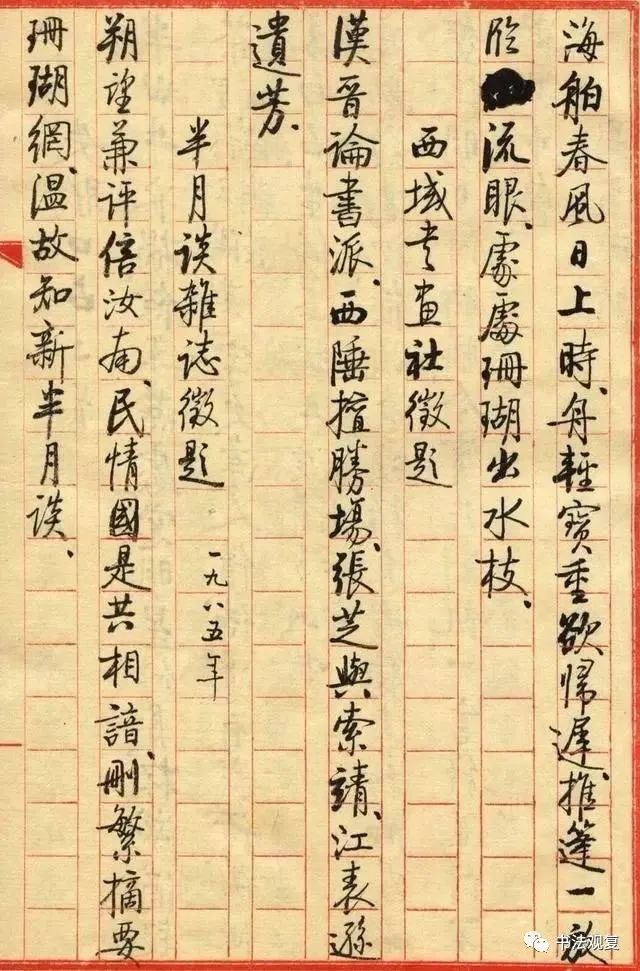 海舶春風日上時、舟輕寶重欲歸遲、推篷一放
流眼、處處珊瑚出水枝、
西域書畫社徵題
漢晉論書派、西陲擅勝場、張芝與索靖、江表遜
遺芳、
半月談雜誌徵題 一九八五年
朔望兼評倍汝南、民情國是共相諳、刪繁摘要
珊瑚網、溫故知新半月談、
书法观复